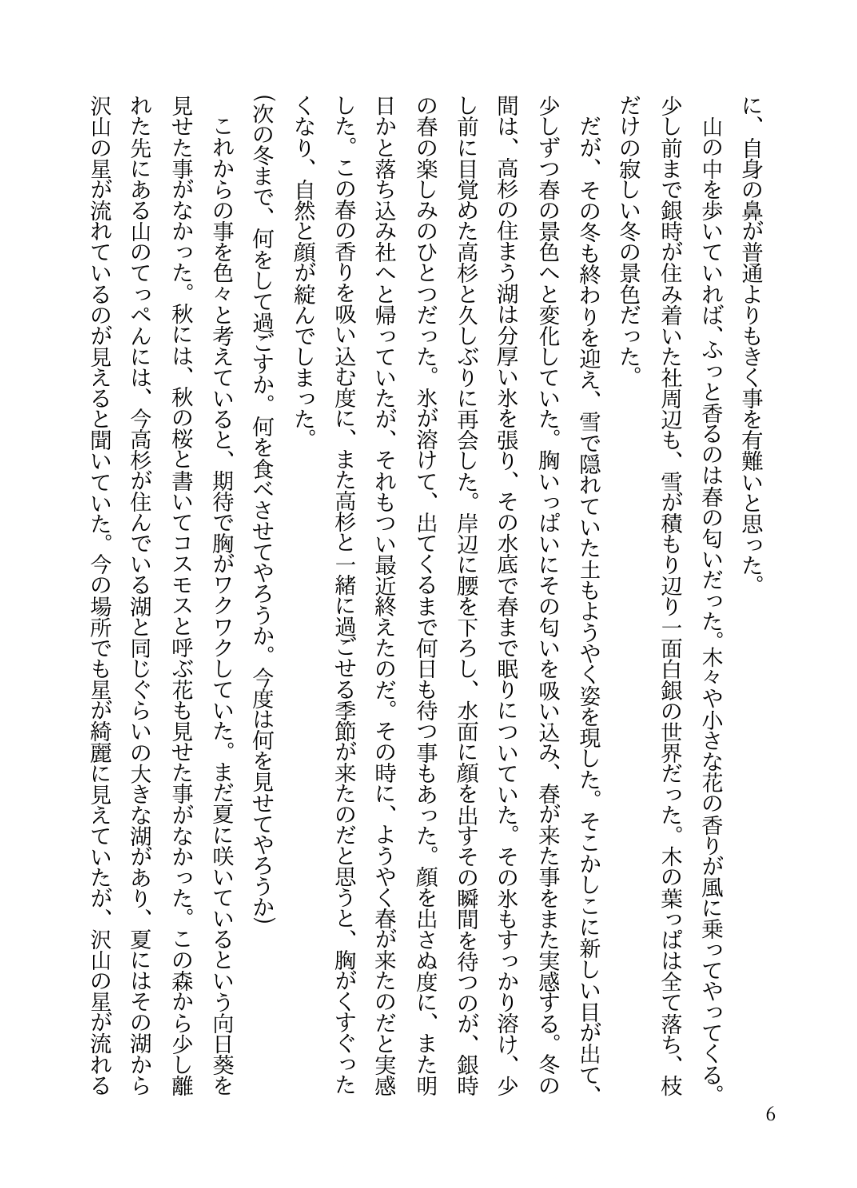 に、自身の鼻が普通よりもきく事を有難いと思った。
山の中を歩いていれば、ふっと香るのは春の匂いだった。木々や小さな花の香りが風に乗ってやってくる。
少し前まで銀時が住み着いた社周辺も、雪が積もり辺り一面白銀の世界だった。木の葉っぱは全て落ち、枝
だけの寂しい冬の景色だった。
だが、その冬も終わりを迎え、雪で隠れていた土もようやく姿を現した。そこかしこに新しい目が出て、
少しずつ春の景色へと変化していた。胸いっぱいにその匂いを吸い込み、春が来た事をまた実感する。冬の
間は、高杉の住まう湖は分厚い氷を張り、その水底で春まで眠りについていた。その氷もすっかり溶け、少
し前に目覚めた高杉と久しぶりに再会した。岸辺に腰を下ろし、水面に顔を出すその瞬間を待つのが、銀時
の春の楽しみのひとつだった。氷が溶けて、出てくるまで何日も待つ事もあった。顔を出さぬ度に、また明
日かと落ち込み社へと帰っていたが、それもつい最近終えたのだ。その時に、ようやく春が来たのだと実感
した。この春の香りを吸い込む度に、また高杉と一緒に過ごせる季節が来たのだと思うと、胸がくすぐった
くなり、自然と顔が綻んでしまった。
(次の冬まで、何をして過ごすか。何を食べさせてやろうか。今度は何を見せてやろうか)
これからの事を色々と考えていると、期待で胸がワクワクしていた。まだ夏に咲いているという向日葵を
見せた事がなかった。秋には、秋の桜と書いてコスモスと呼ぶ花も見せた事がなかった。この森から少し離
れた先にある山のてっぺんには、今高杉が住んでいる湖と同じぐらいの大きな湖があり、夏にはその湖から
沢山の星が流れているのが見えると聞いていた。今の場所でも星が綺麗に見えていたが、沢山の星が流れる
6